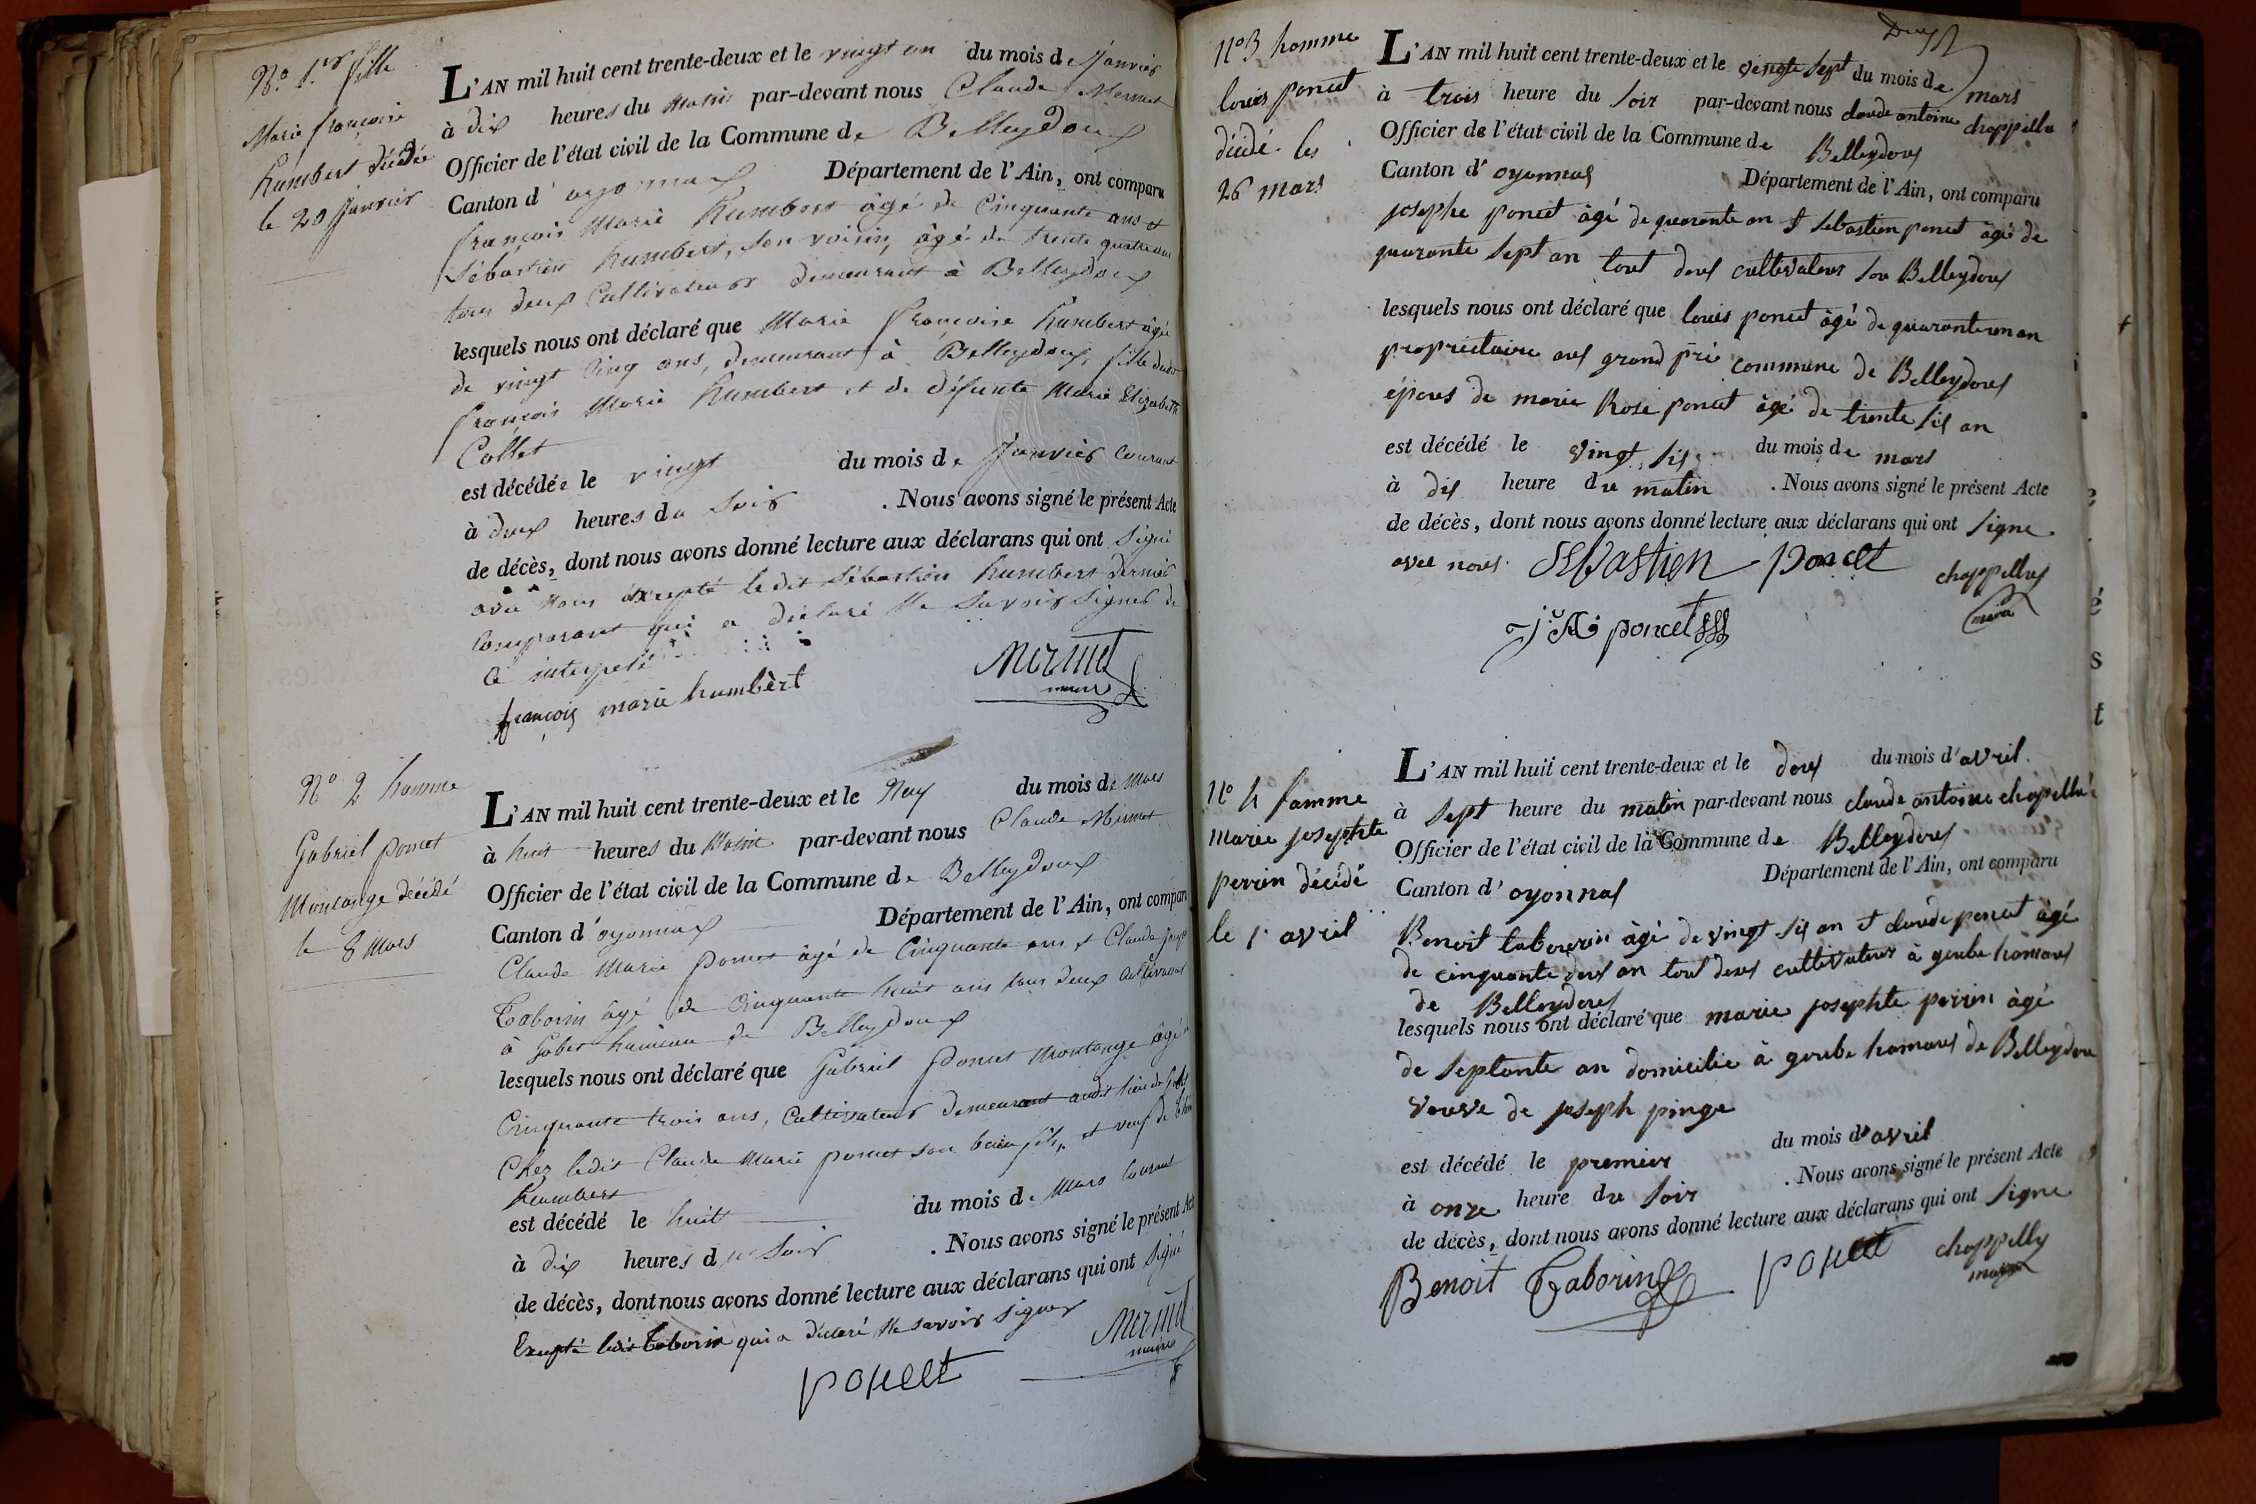 N.o 1.er fille
Marie françoise
humbert décédée
le 20 Janvier
L'AN mil huit cent trente-deux et le vingt un du mois de Janvier
à dix heures du matin par-devant nous Claude Mermet
Officier de l'état civil de la Commune de Belleydoux
Canton d'oyonnax Département de l'Ain, ont comparu
françois Marie humbert âgé de Cinquante ans et
Sébastien humbert, son voisin, âgé de trente quatre ans
tous deux Cultivateurs demeurant à Belleydoux
lesquels nous ont déclaré que Marie françoise humbert âgée
de vingt Cinq ans, demeurant à Belleydoux, fille dudit
françois Marie humbert et de défunte Marie Elizabeth
Collet
est décédée le vingt du mois de Janvier Courant
à deux heures du soir . Nous avons signé le présent Acte
de décès, dont nous avons donné lecture aux déclarans qui ont signé
avec nous excepté ledit Sébastien humbert dernier
Comparant qui a déclaré ne savoir signer de
ce interpelé
françois marie humbert
Mermet
maire
N.o 2 homme
Gabriel poncet
Montange décédé
le 8 Mars
L'AN mil huit cent trente-deux et le Neuf du mois de Mars
à huit heures du Matin par-devant nous Claude Mermet
Officier de l'état civil de la Commune de Belleydoux
Canton d'oyonnax Département de l'Ain, ont comparu
Claude Marie poncet âgé de Cinquante ans et Claude Joseph
Taborin âgé de Cinquante huit ans tous deux cultivateurs
à Gobet hameau de Belleydoux
lesquels nous ont déclaré que Gabriel poncet Montange âgé de
Cinquante trois ans, Cultivateur demeurant audit lieu de
Chez ledit Claude Marie poncet son beau fils, et veuf de
humbert
est décédé le huit du mois de Mars Courant
à dix heures du soir . Nous avons signé le présent Acte
de décès, dont nous avons donné lecture aux déclarans qui ont signé
Excepté ledit Taborin qui a déclaré ne savoir signer
poncet
Mermet
maire
N.o 3 homme
louis poncet
décédé les
26 mars
L'AN mil huit cent trente-deux et le vingte sept du mois de mars
à trois heure du soir par-devant nous claude antoine chappellu
Officier de l'état civil de la Commune de Belleydoux
Canton d'oyonnax Département de l'Ain, ont comparu
josephe poncet âgé de quarante an et sebastien poncet âgé de
quarante sept an tout deux cultivateur sou Belleydoux
lesquels nous ont déclaré que louis poncet âgé de quarante un an
propriétaire aus grand pré commune de Belleydoux
épous de marie Rose poncet âgé de trente sis an
est décédé le vingt sis du mois de mars
à dis heure du matin . Nous avons signé le présent Acte
de décès, dont nous avons donné lecture aux déclarans qui ont signe
avec nous. Sebastien poncet
chappellus
maire
poncet
N.o 4 famme
marie josephte
perrin décédé
le 1r avril
L'AN mil huit cent trente-deux et le deux du mois d'avril
à sept heure du matin par-devant nous claude antoine chapellu
Officier de l'état civil de la Commune de Belleydoux
Canton d'oyonnas Département de l'Ain, ont comparu
Benoit taborin âgé de vingt sis an et claude poncet âgé
de cinquante deux an tout deux cultivateur à goube hamaux
de Belleydoux
lesquels nous ont déclaré que marie josephte perrin âgé
de septante an domicilie à goube hamaus de Belleydou
veuve de joseph pinge
est décédé le premier du mois d'avril
à onze heure du soir . Nous avons signé le présent Acte
de décès, dont nous avons donné lecture aux déclarans qui ont signe
Benoit Taborin poncet
chappelly
maire